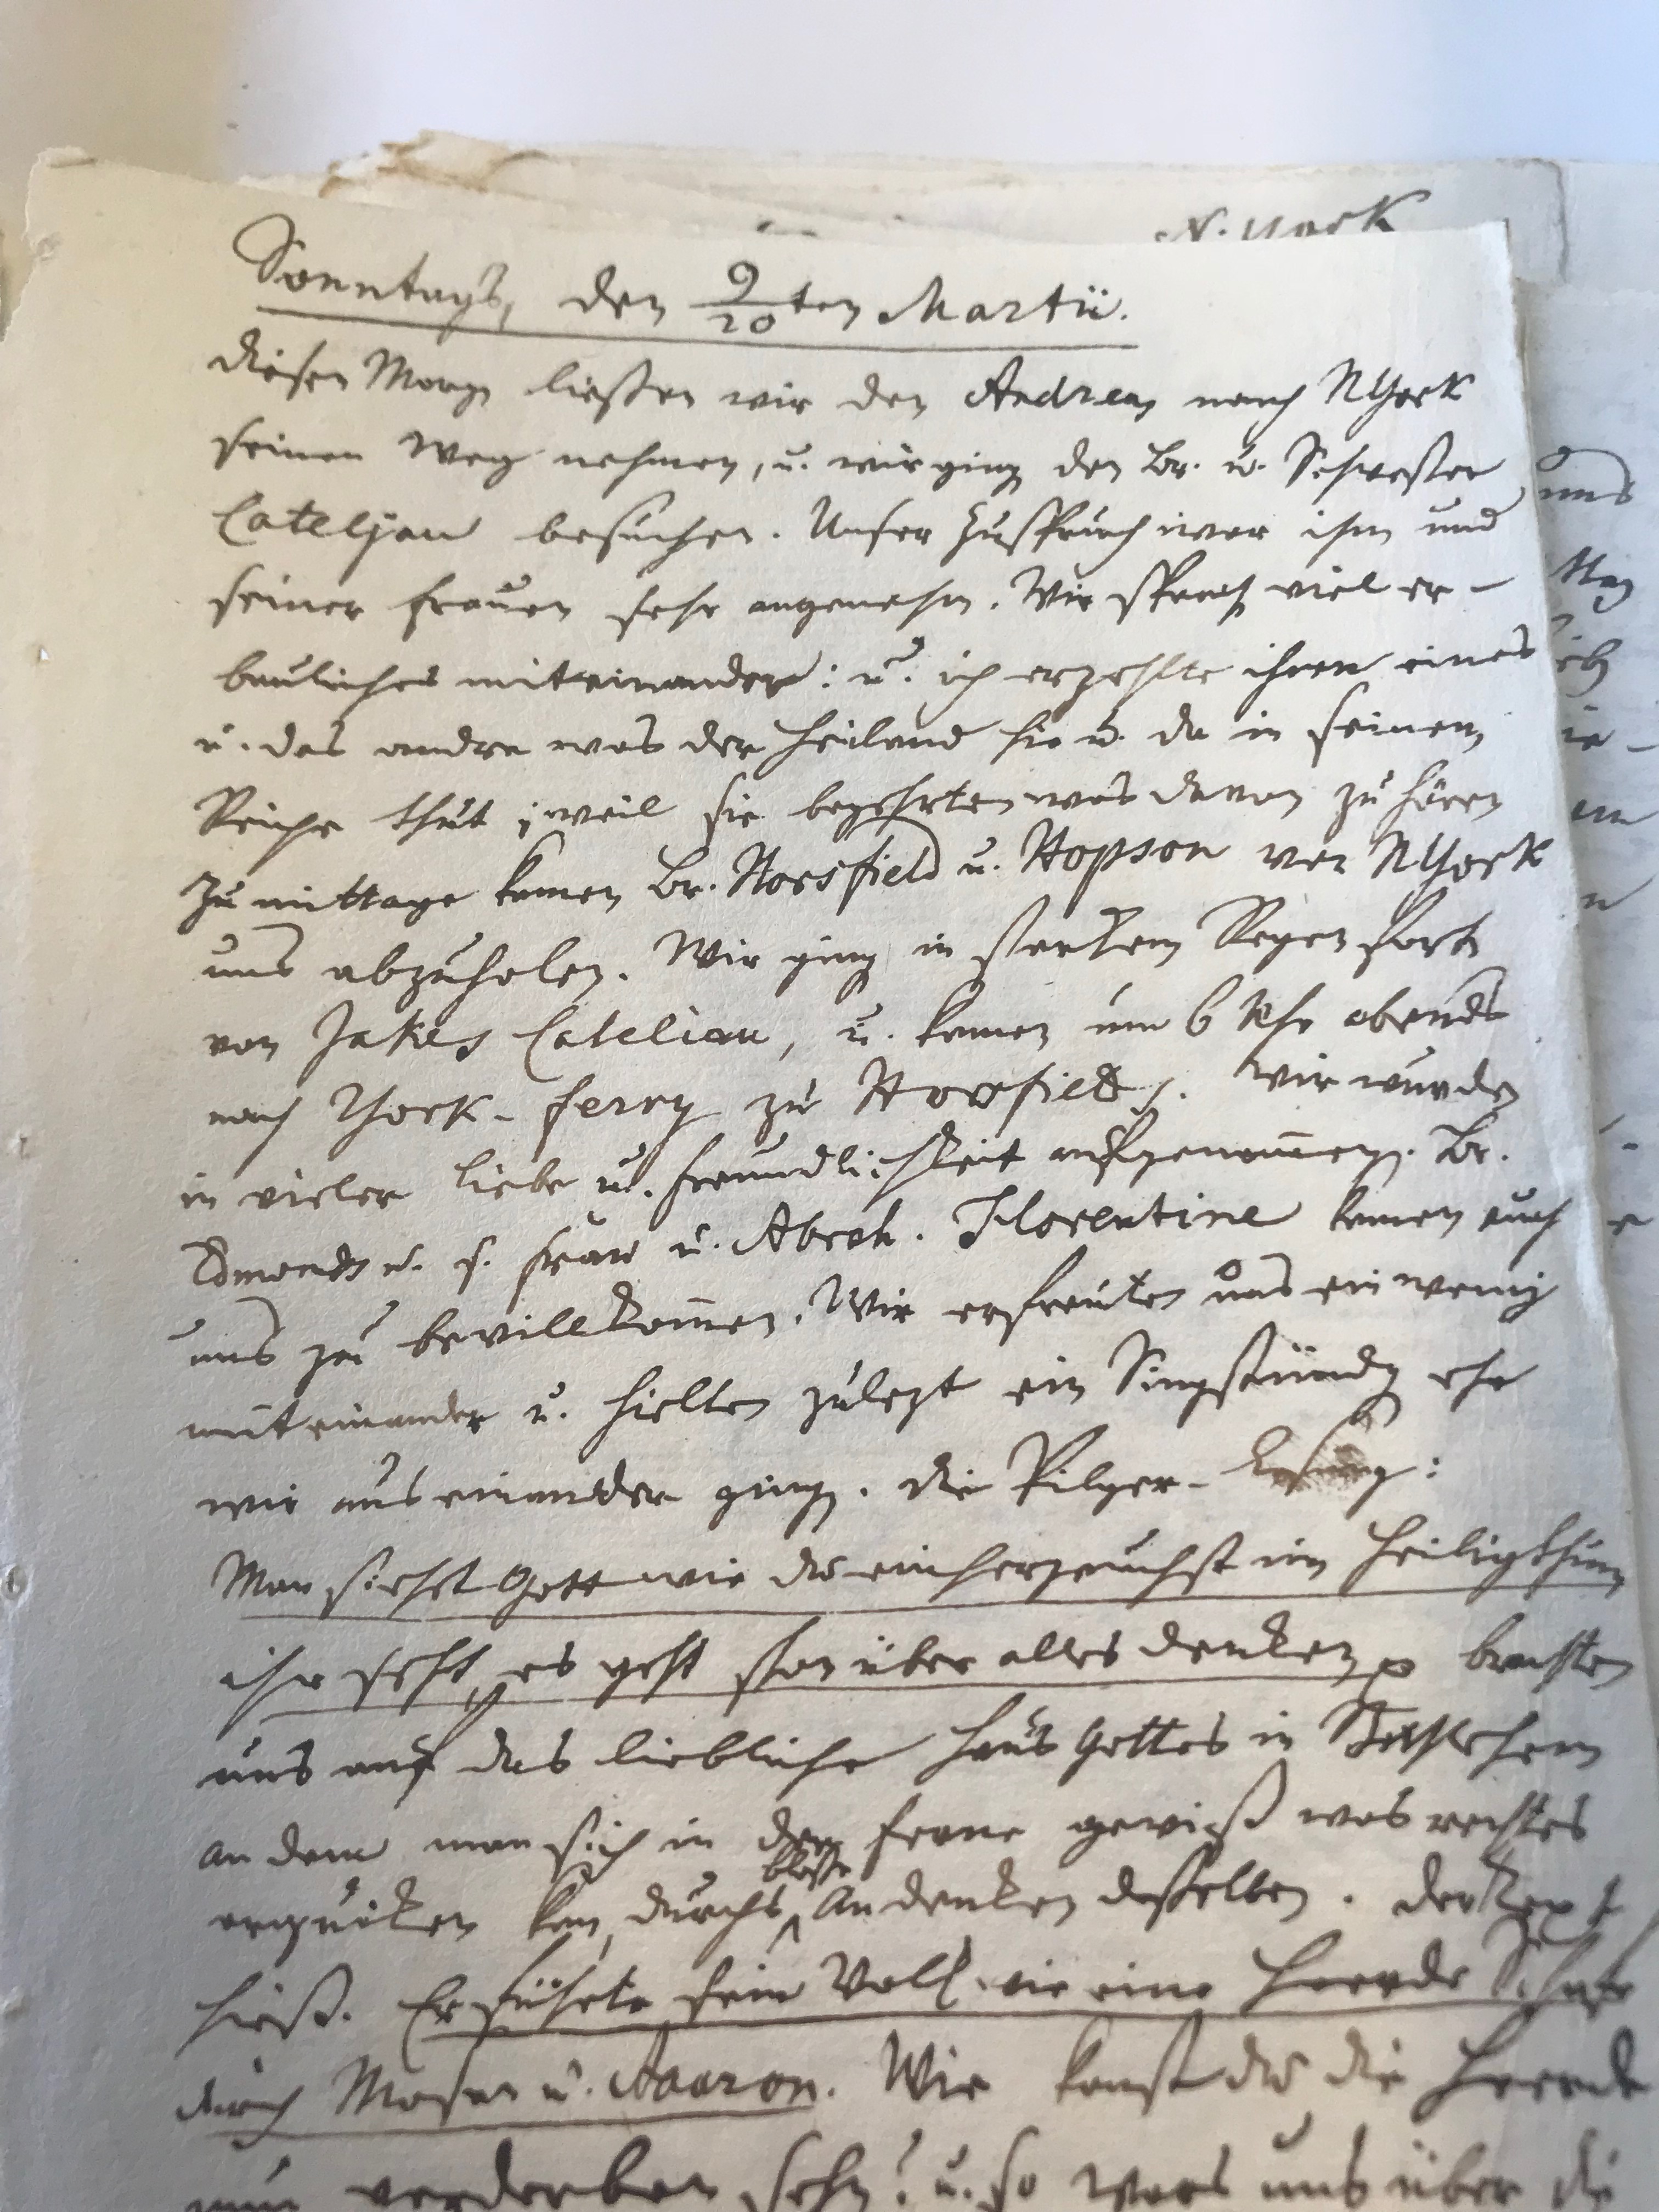 N. York
Sonntags, den 9/20ten Martii.
diesen Morgen ließen wir den Andreas nach NYork
seinen Weg nehmen, u. wir gingen den Br. u. Schwester
Cateljau besuchen. Unser Zuspruch war ihm und
seiner Frauen sehr angenehm. Wir sprachen viel er-
bauliches miteinander: u. ich erzehlte ihnen eines
u. das andre was der Heiland hie u. da in seinem
Reiche thut; weil sie begehrten was davon zu hören
Zu mittage kamen Br. Horsfield u. Hopson von NYork
uns abzuholen. Wir gingen in starkem Regen fort
von Jakes Cateliau, u. kamen um 6 Uhr abends
nach York-ferry zu Horsfields. Wir wurden
in vieler Liebe u. Freundlichkeit aufgenom̅en. Br.
Edmonds u. s. Frau u. Abrah. Florentine kamen auch
uns zu bewillkom̅en. Wir erfreuten uns ein wenig
miteinander u. hielten zulezt ein Singstündgen ehe
wir auseinander gingen. Die Pilger-Losung:
Man siehet Gott wie du einherzeuchst im Heiligthum
ihr seht, es geht schon über alles denken brachten
uns auf das liebliche Haus Gottes in Bethlehem
an dem man sich in der ferne gewiß was rechtes
erquiken kan, durchs bloße Andenken desselben. Der Text
hieß. Er führete sein Volk wie eine Heerde Schafe
durch Mosen u. Aaaron. Wie kanst du die Heerde
nun verderben sehn? u. so wars uns über die
uns